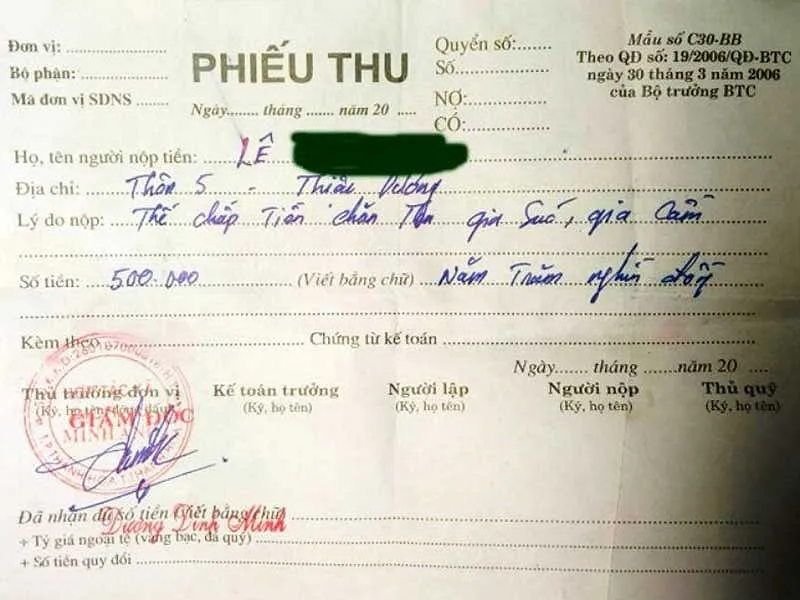 Đơn vị:
Bộ phận:
Mã đơn vị SDNS
PHIẾU THU
Ngày tháng năm 20
Quyển số:
Số
NỢ:
CÓ:
Mẫu số C30-BB
Theo QĐ số: 19/2006/QĐ-BTC
ngày 30 tháng 3 năm 2006
của Bộ trưởng BTC
Họ, tên người nộp tiền: LÊ
Địa chỉ: Thôn 5 - Thiệu Dương
Lý do nộp: Thế chấp Tiền chăn Thả gia Suc, gia Cầm
Số tiền: 500.000 (Viết bằng chữ) Năm Trăm nghìn đồng
Kèm theo Chứng từ kế toán
Ngày tháng năm 20
Thủ trưởng đơn vị Kế toán trưởng Người lập Người nộp Thủ quỹ
(Ký, họ tên, đóng dấu) (Ký, họ tên) (Ký, họ tên) (Ký, họ tên) (Ký, họ tên)
GIÁM ĐỐC
MINH
Đã nhận đủ số tiền (Viết bằng chữ)
Dương Đình Minh
+ Tỷ giá ngoại tệ (vàng bạc, đá quý)
+ Số tiền quy đổi